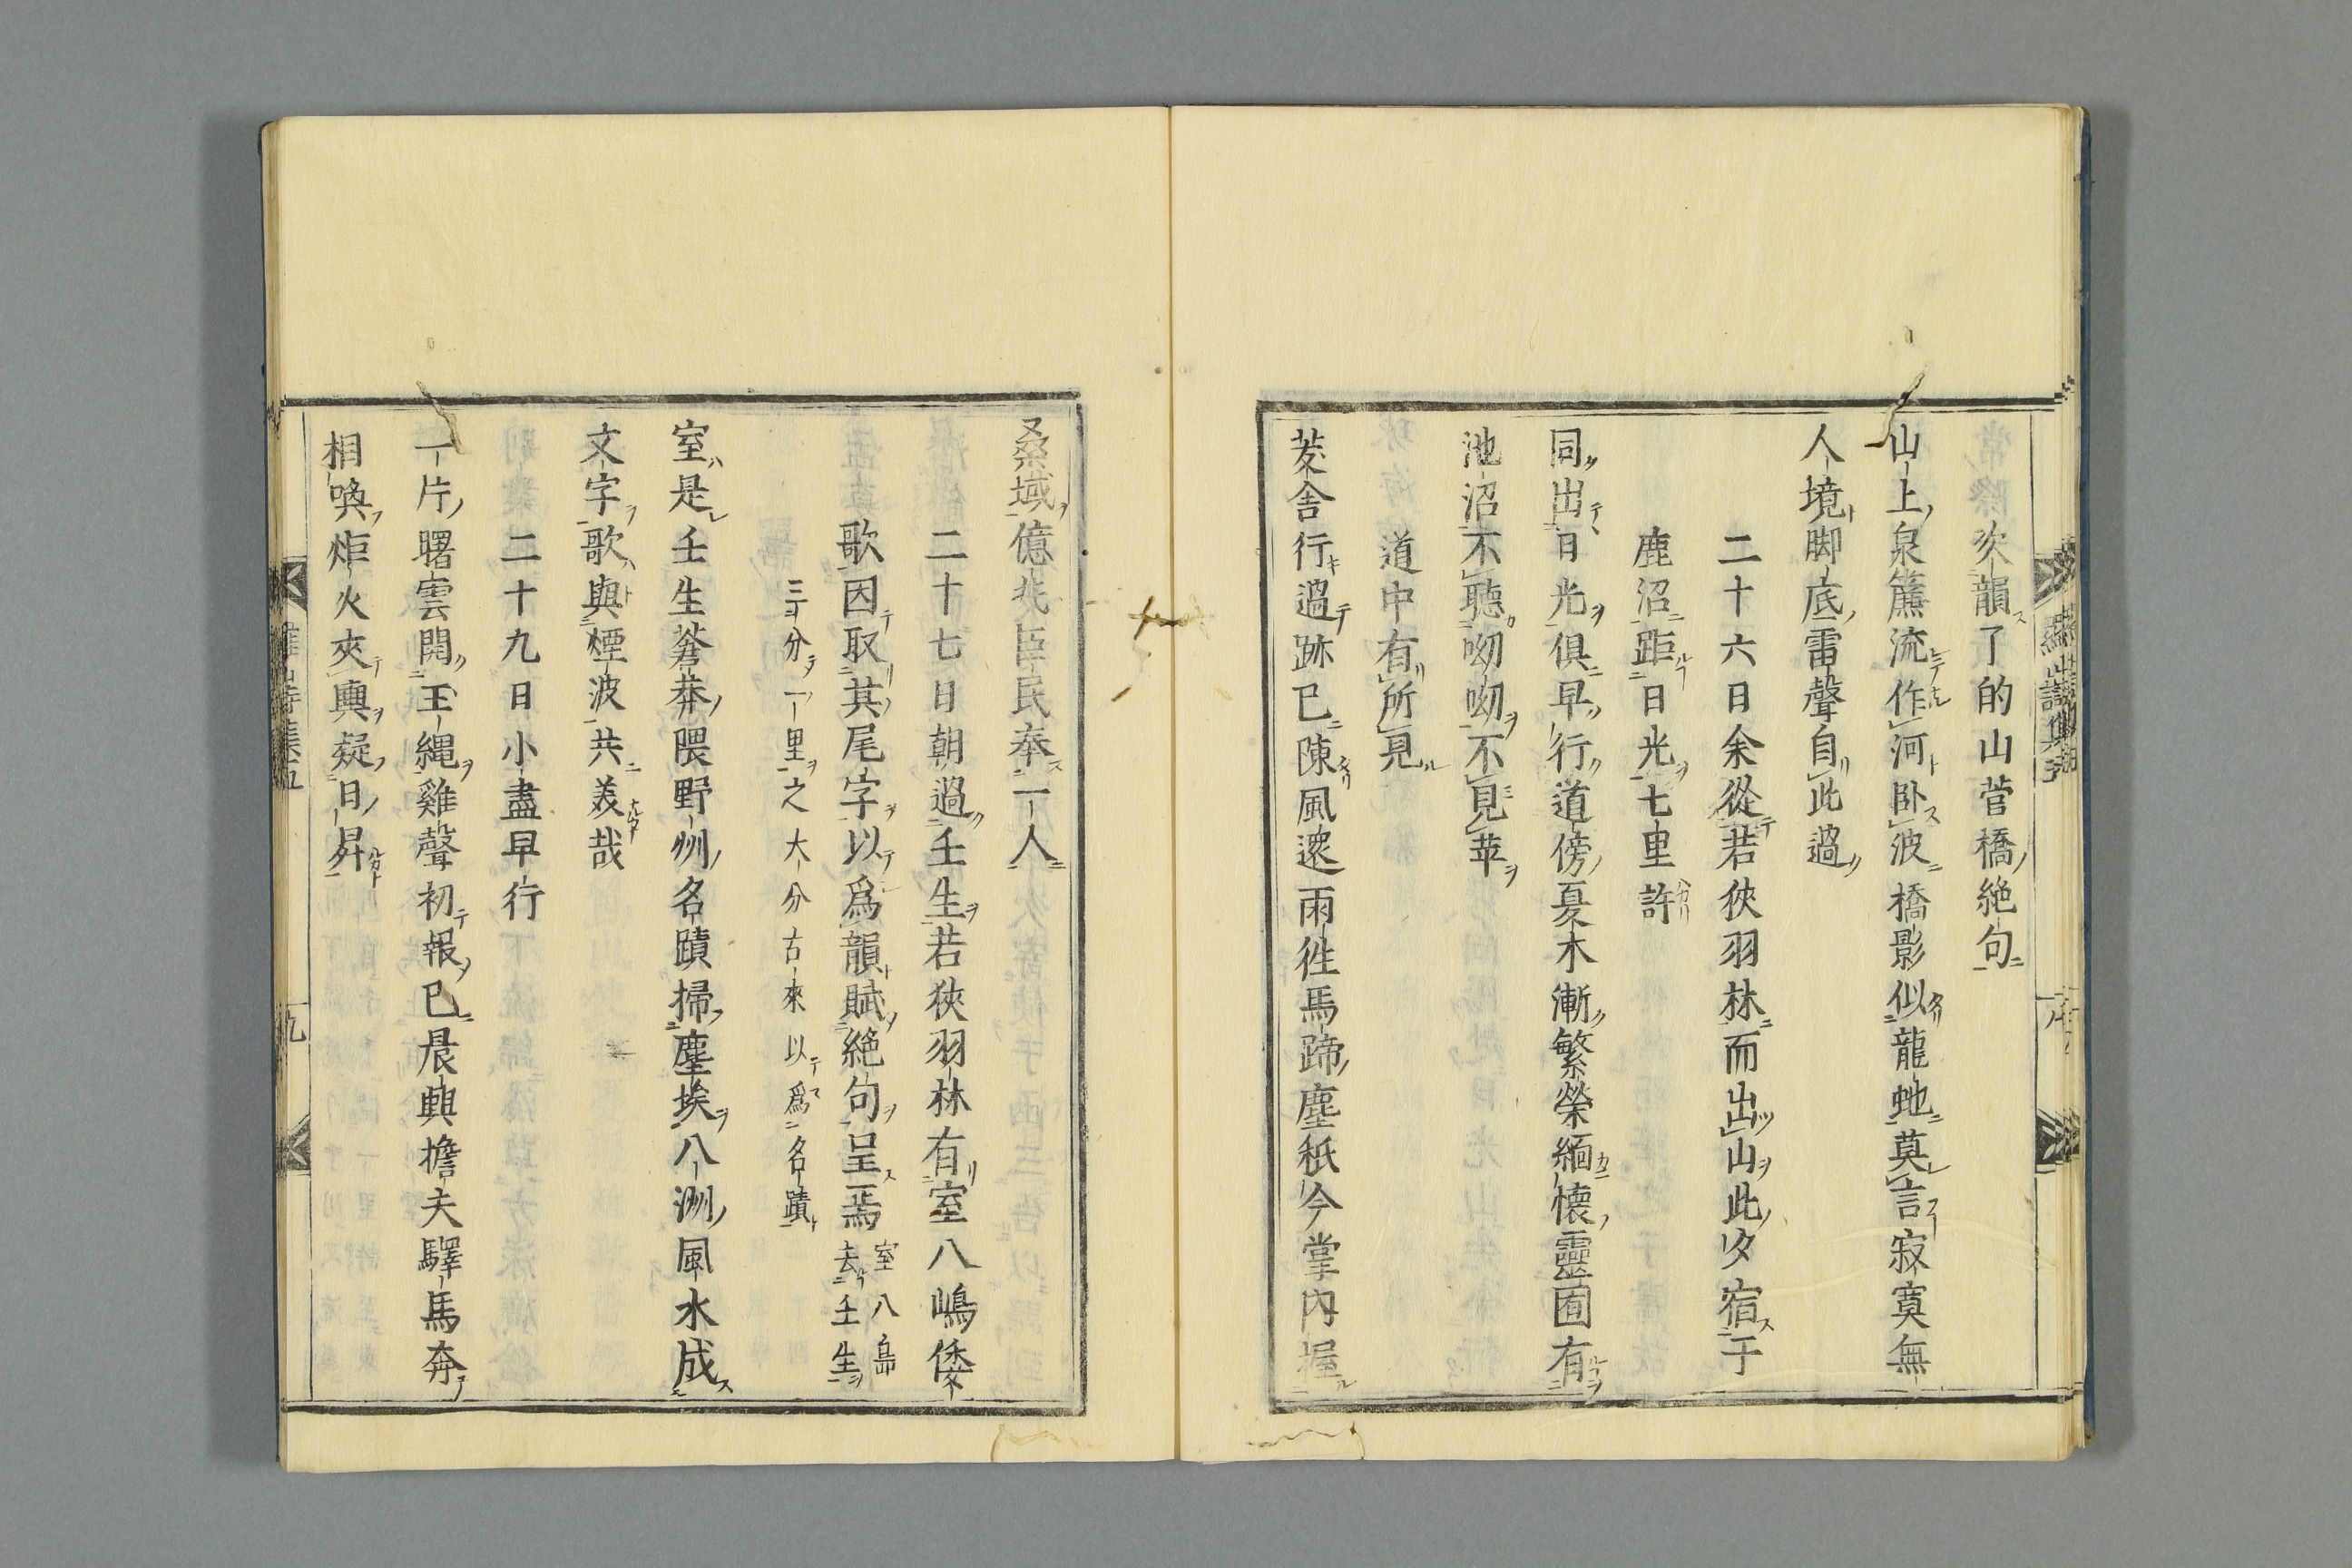 次韻了的山菅橋絶句
山上泉簾流作河卧波橋影似龍虵莫言寂寞無
人境脚底雷聲自此過
二十六日余從若狹羽林而出山此夕宿于
鹿沼距日光七里許
同出日光倶早行道傍憂木漸繁榮緬懐靈囿有
池沼不聽呦呦不見苹
道中有所見
茇舎行過跡已陳風邊雨徃馬蹄塵秖今掌内握
桑域億兆臣民奉一人
二十七日朝過壬生若狹羽林有室八嶋倭
歌因取其尾字以爲韻賦絶句呈焉室八島
去壬生
三分一里之大分古來以爲名蹟
室是壬生蒼莽隈野州名蹟掃塵埃八洲風水成
文字歌與煙波共羙哉
二十九日小盡早行
一片曙雲開玉縄雞聲初報已晨興擔夫驛馬奔
相喚炬火夾輿疑日昇
羅山詩集五
九